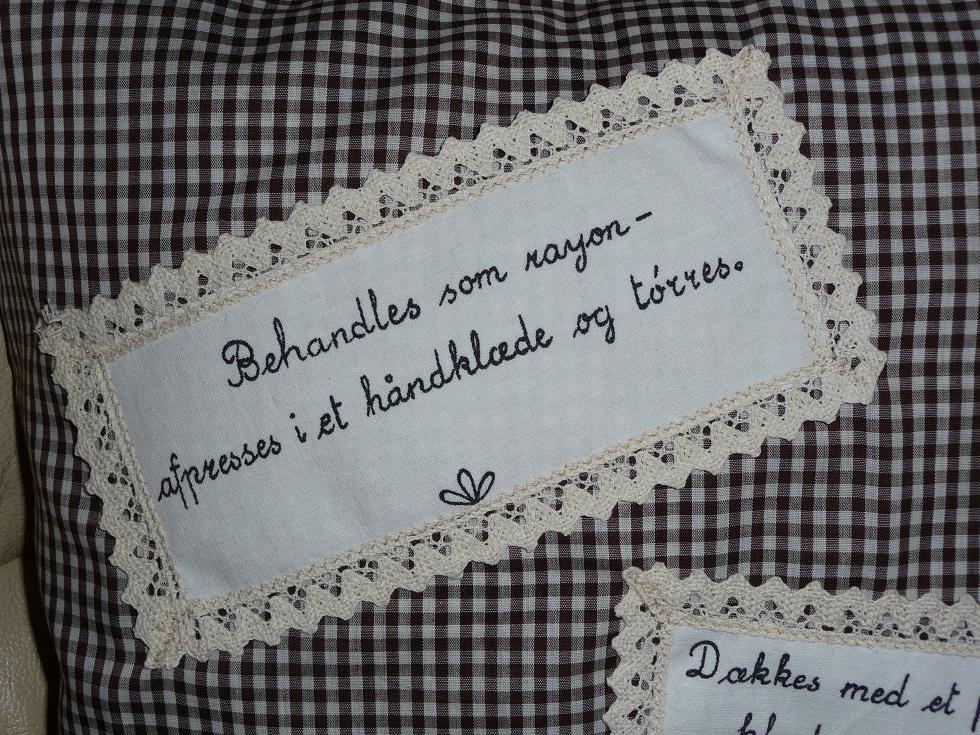 Behandles som rayon-
afpresses i et håndklæde og tórres.
Dækkes med et